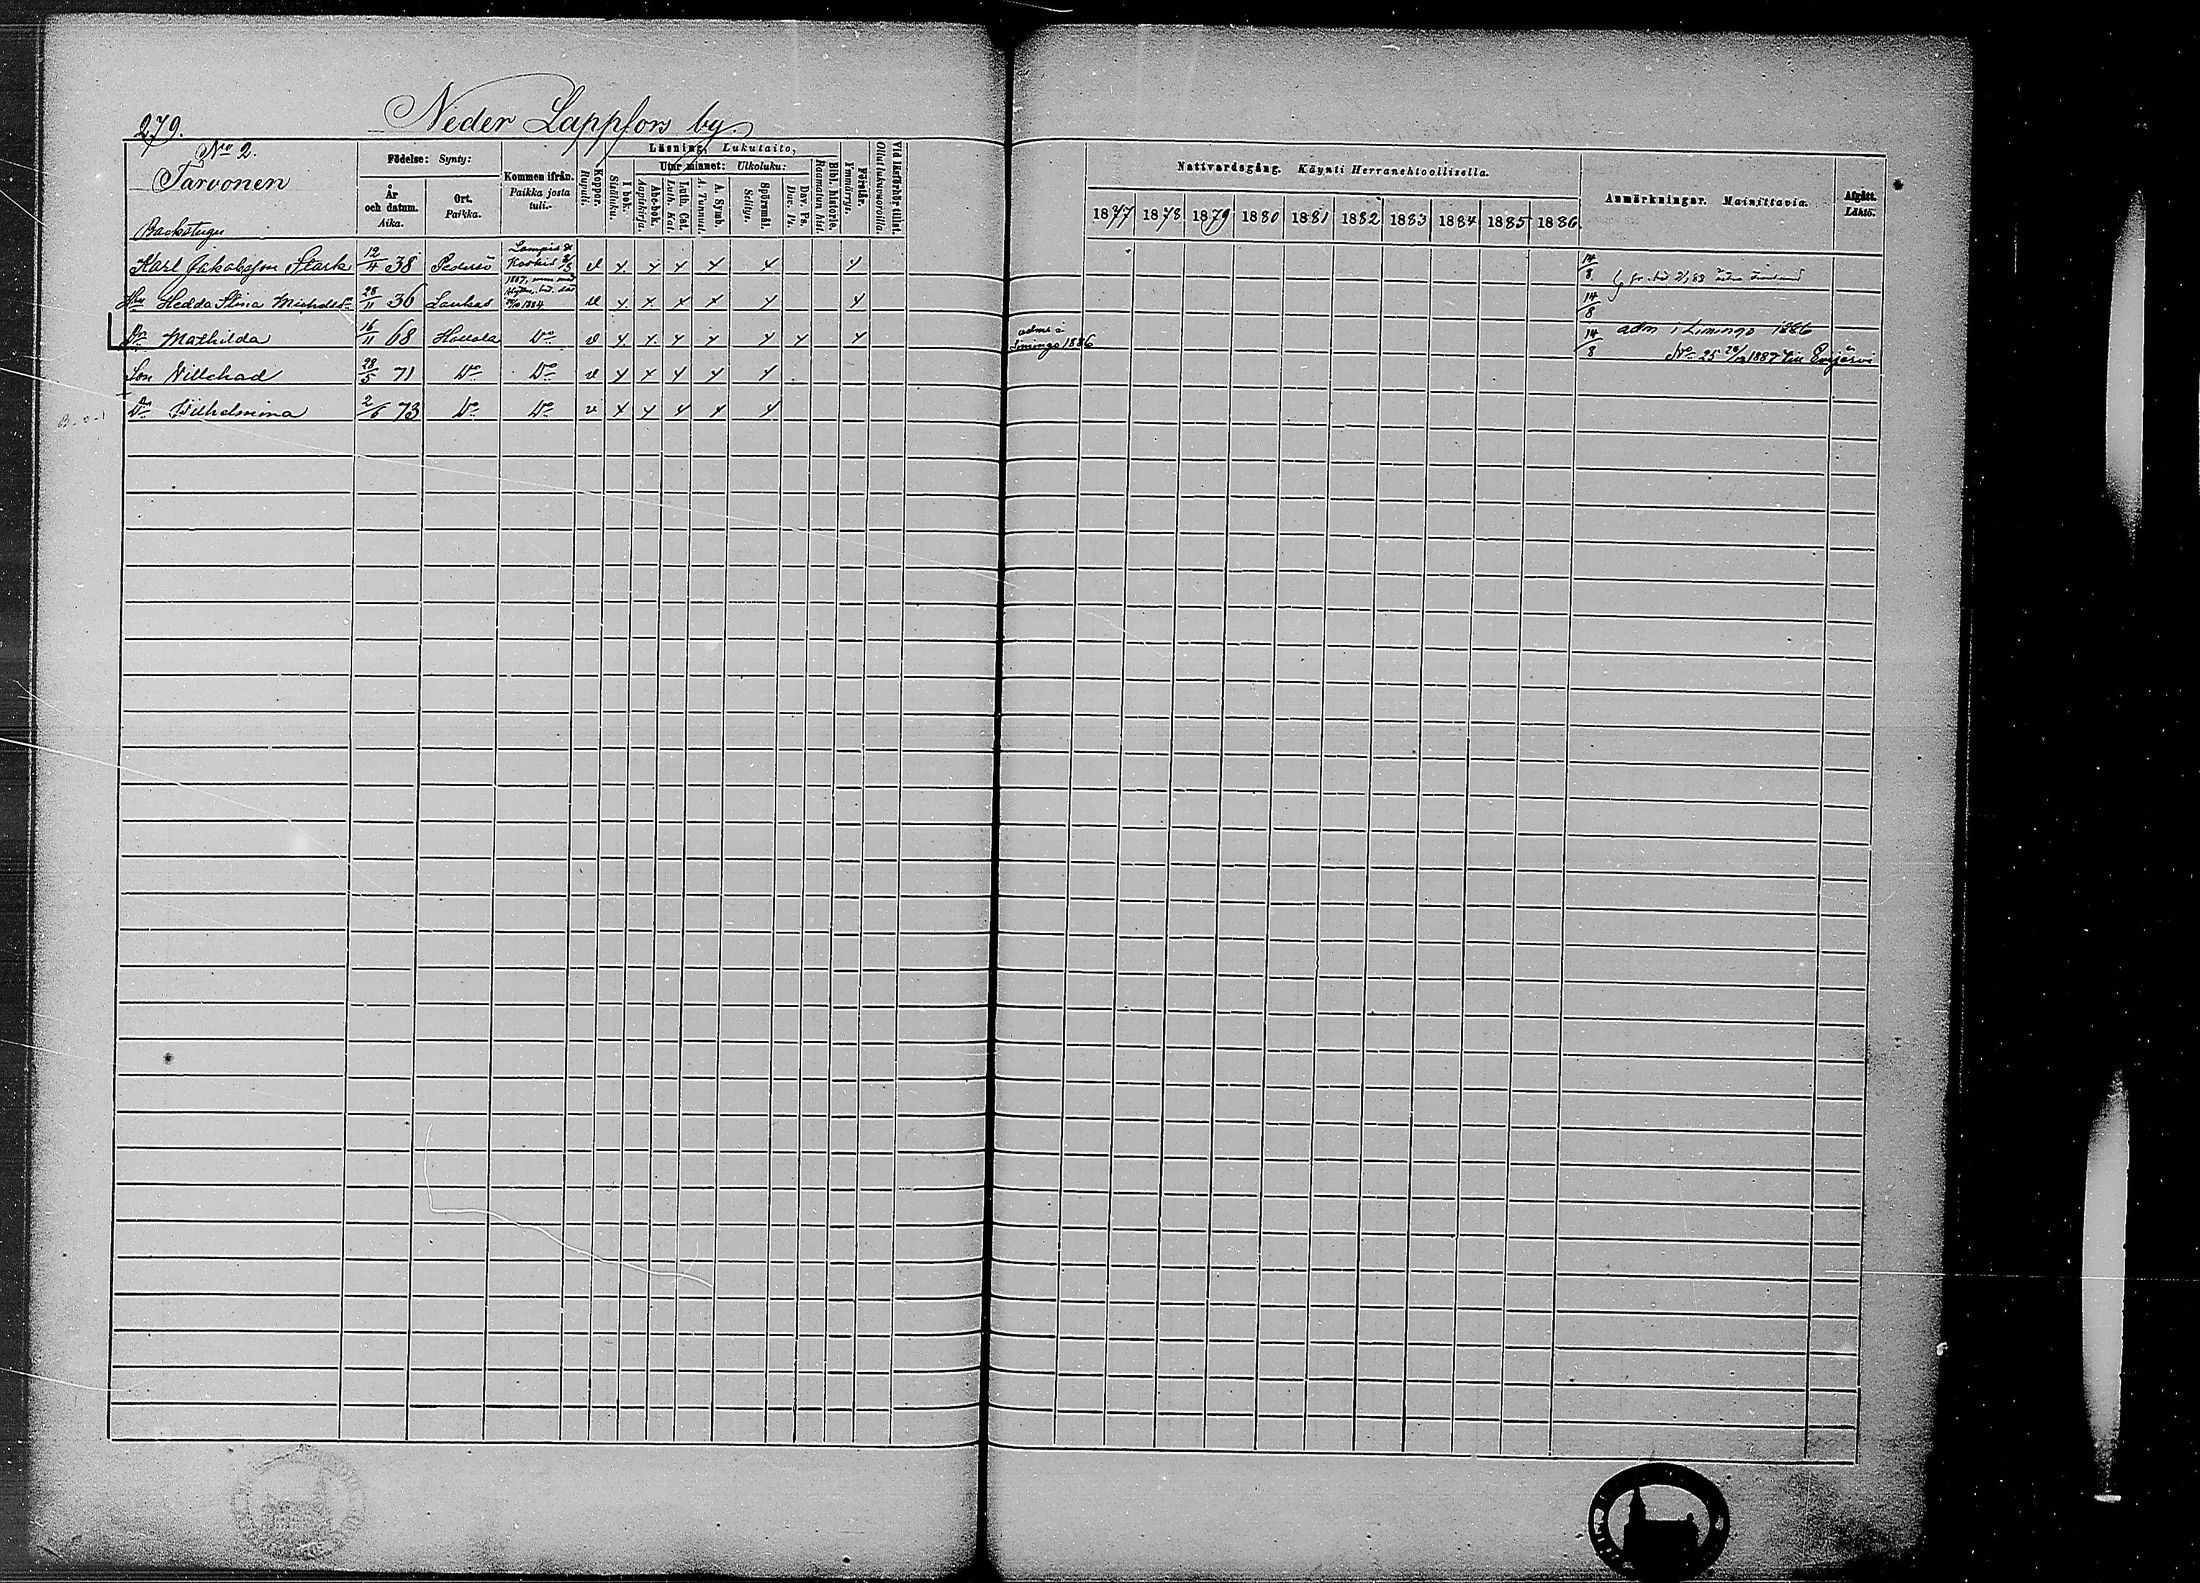 279.
Neder Lappfors by.
No 2.
Tarvonen
Backstugu
Födelse: Synty:
År och datum. Aika.
Ort. Paikka.
Kommen ifrån. Paikka josta tuli.
Koppor. Rupuli.
Läsning. Lukutaito,
I bok. Sisäluku.
Utur minnet: Ulkoluku:
Abc-bok. Aapiskirja.
Luth. Cat. Luth. Kat.
A. Symb. A. Tunnust.
Spörsmål. Selitys.
Dav. Ps. Dav. Ps.
Bibl. historie. Raamatun hist.
Förstår. Ymmärrys.
Vid läsförhör tillst. Ollut lukuvuoroilla.
Nattvardsgång. Käynti Herranehtoollisella.
1877 1878 1879 1880 1881 1882 1883 1884 1885 1886
Anmärkningar. Mainittavia.
Afgått. Lähtö.
Karl Jakobsson Stark 12/4 38 Pedersö v x x x x x x 14/8
1884.
Hu Hedda Stina 28/11 36 Laukas v x x x x x x 14/8
Dr Mathilda 16/11 68 Hollola Do v x x x x x x x adm i Limingo 1886 14/8 adm i Limingo 1886
No 25 1887 till Evijärvi
Son Willehad 28/5 71 Do Do v x x x x x
Dr Wilhelmina 2/6 73 Do Do v x x x x x